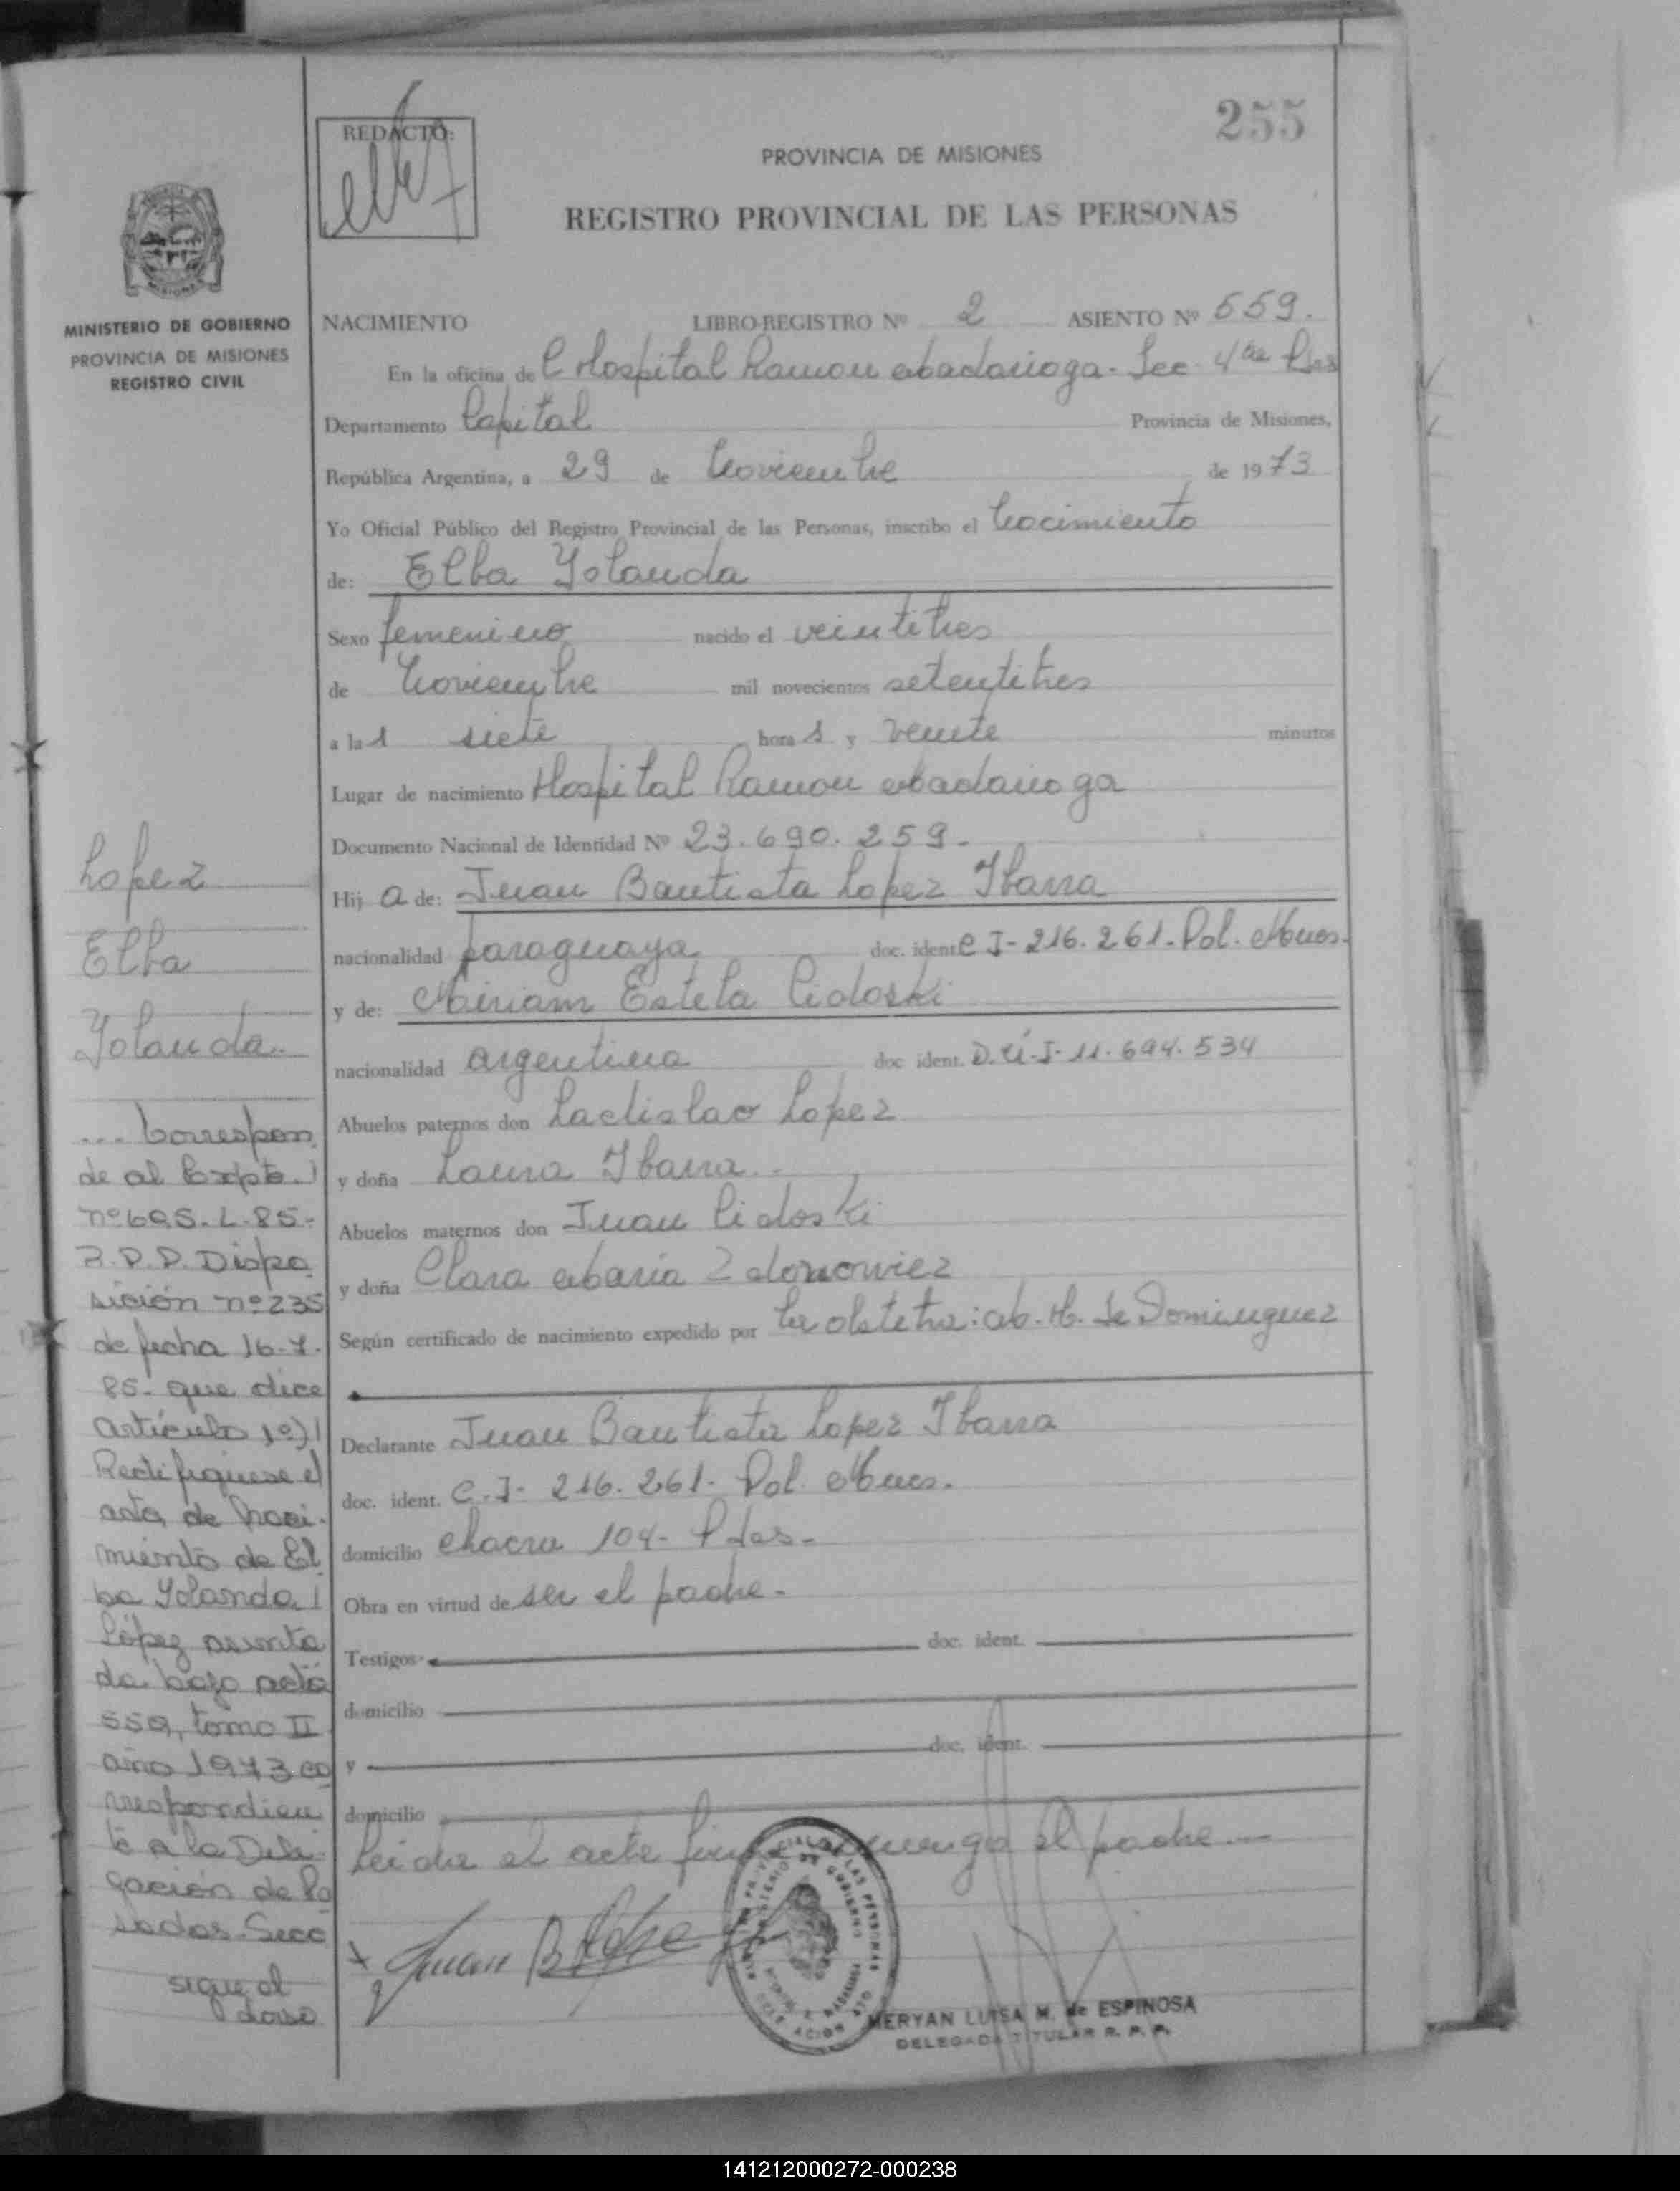 255
REDACTO:
PROVINCIA DE MISIONES
REGISTRO PROVINCIAL DE LAS PERSONAS
MINISTERIO DE GOBIERNO
PROVINCIA DE MISIONES
REGISTRO CIVIL
NACIMIENTO LIBRO-REGISTRO Nº 2 ASIENTO Nº 559.
En la oficina de Hospital Ramon Madariaga - Sec 4ta Pdas
Departamento Capital Provincia de Misiones,
República Argentina, a 29 de Noviembre de 1973
Yo Oficial Público del Registro Provincial de las Personas, inscribo el Nacimiento
de: Elba Yolanda
Sexo femenino nacido el veintitres
de Noviembre mil novecientos setentitres
a las siete horas y veinte minutos
Lugar de nacimiento Hospital Ramon Madariaga
Documento Nacional de Identidad Nº 23.690.259.-
Hija de: Juan Bautista Lopez Ibarra
nacionalidad paraguaya doc. ident C I - 216.261 - Pol. Mnes.
y de: Miriam Estela Cidoski
nacionalidad argentina doc ident. D.N.I- 11.694.534
Abuelos paternos don Ladislao Lopez
y doña Laura Ibarra.-
Abuelos maternos don Juan Cidoski
y doña Clara Maria Zdonowiez
Según certificado de nacimiento expedido por la obstetra: M. H. de Dominguez
Declarante Juan Bautista Lopez Ibarra
doc. ident. C.I- 216.261- Pol. Mnes.
domicilio chacra 104- Pdas.-
Obra en virtud de ser el padre.-
Testigos doc. ident.
domicilio
y doc. ident.
domicilio
Leida el acta firma conmigo el padre.—
Juan B Lope
MERYAN LUISA M. de ESPINOSA
DELEGADA TITULAR R. P. P.
Lopez
Elba
Yolanda.
... Correspon
de al Expte.
nº 695-L-85-
R.P.P. Dispo
sición nº 235
de fecha 16-7-
85- que dice
artículo 1º)
Rectifiquese el
acta de Naci-
miento de El
ba Yolanda
López asenta
da bajo acta
559, tomo II
año 1973 co
rrespondien
te a la Dele
gación de Po
sadas Secc
sigue al
dorso
141212000272-000238